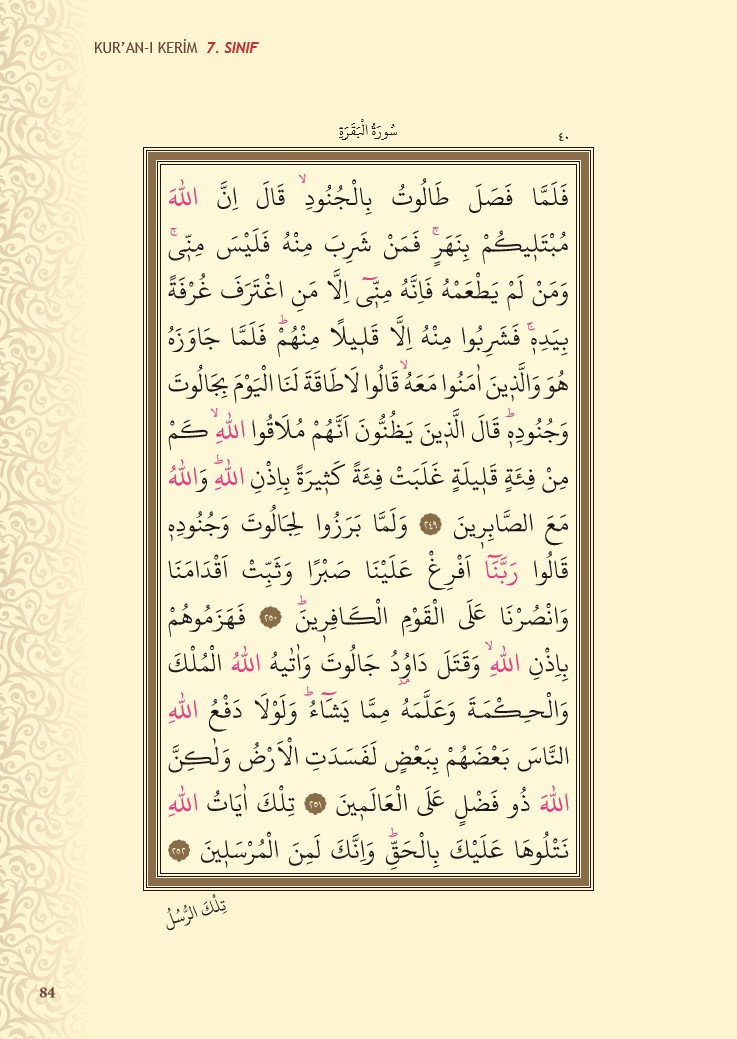 KUR’AN-I KERİM 7. SINIF
سُورَةُ الْبَقَرَةِ ٤٠
فَلَمَّا فَصَلَ طَالُوتُ بِالْجُنُودِۙ قَالَ اِنَّ اللّٰهَ
مُبْتَل۪يكُمْ بِنَهَرٍۚ فَمَنْ شَرِبَ مِنْهُ فَلَيْسَ مِنّ۪يۚ
وَمَنْ لَمْ يَطْعَمْهُ فَاِنَّهُ مِنّ۪ٓي اِلَّا مَنِ اغْتَرَفَ غُرْفَةً
بِيَدِه۪ۚ فَشَرِبُوا مِنْهُ اِلَّا قَل۪يلًا مِنْهُمْۜ فَلَمَّا جَاوَزَهُ
هُوَ وَالَّذ۪ينَ اٰمَنُوا مَعَهُۙ قَالُوا لَا طَاقَةَ لَنَا الْيَوْمَ بِجَالُوتَ
وَجُنُودِه۪ۜ قَالَ الَّذ۪ينَ يَظُنُّونَ اَنَّهُمْ مُلَاقُوا اللّٰهِۙ كَمْ
مِنْ فِئَةٍ قَل۪يلَةٍ غَلَبَتْ فِئَةً كَث۪يرَةً بِاِذْنِ اللّٰهِۜ وَاللّٰهُ
مَعَ الصَّابِر۪ينَ ٢٤٩ وَلَمَّا بَرَزُوا لِجَالُوتَ وَجُنُودِه۪
قَالُوا رَبَّنَٓا اَفْرِغْ عَلَيْنَا صَبْرًا وَثَبِّتْ اَقْدَامَنَا
وَانْصُرْنَا عَلَى الْقَوْمِ الْكَافِر۪ينَۜ ٢٥٠ فَهَزَمُوهُمْ
بِاِذْنِ اللّٰهِۙ وَقَتَلَ دَاوُ۫دُ جَالُوتَ وَاٰتٰيهُ اللّٰهُ الْمُلْكَ
وَالْحِكْمَةَ وَعَلَّمَهُ مِمَّا يَشَٓاءُۜ وَلَوْلَا دَفْعُ اللّٰهِ
النَّاسَ بَعْضَهُمْ بِبَعْضٍ لَفَسَدَتِ الْاَرْضُ وَلٰكِنَّ
اللّٰهَ ذُو فَضْلٍ عَلَى الْعَالَم۪ينَ ٢٥١ تِلْكَ اٰيَاتُ اللّٰهِ
نَتْلُوهَا عَلَيْكَ بِالْحَقِّۜ وَاِنَّكَ لَمِنَ الْمُرْسَل۪ينَ ٢٥٢
تِلْكَ الرُّسُلُ
84